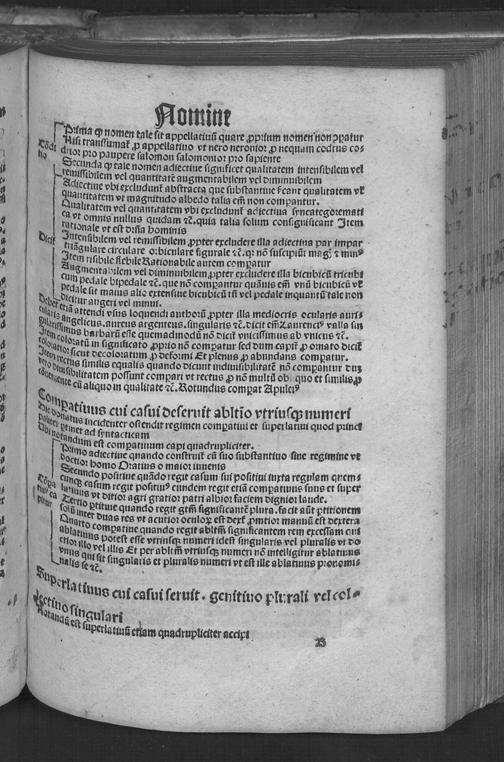 Nomine
Prima ꝙ nomen tale sit appellatiuū quare ꝓprium nomen non ꝯpatur
Nisi transsumat᷑ ꝓ appellatiuo vt nero neronior ꝓ nequam codrus co-
ditior pro paupere salomon salomonior pro sapiente
Cōditio
Secunda ꝙ tale nomen adiectiue significet qualitatem intensibilem vel
remissibilem vel quantitatē augmentabilem vel diminuibilem
Adiectiue vbi excludunt᷑ abstracta que substantiue ſicant qualitatem vel
quantitatem vt magnitudo albedo talia em̄ non compantur.
Qualitatem vel quantitatem vbi excludunt᷑ adiectiua syncategoremati
ca vt omnis nullus quidam ⁊c. quia talia solum consignificant Item
rationale vt est dr̄ia hominis
Dicit᷑
Intensibilem vel remissibilem ꝓpter excludere illa adiectiua par impar
triāgulare circulare orbiculare sigurale ⁊c. q̄ nō suscipiūt mag̛ ⁊ min9
Item risibile flebile Rationabile autem compatur
Augmentabilem vel diminuibilem ꝓpter excludere illa bicubicū tricubi
cum pedale bipedale ⁊c. que nō compantur quāuis em̄ vnū bicubicū vel
pedale sit maius alio extensiue bicubicū tn̄ vel pedale inquantū tale non
dicitur augeri vel minui.
Debet etiā attendi vsus loquendi authorū ꝓpter illa mediocris ocularis auri-
cularis angelicus. aureus argenteus. singularis ⁊c. dicit em̄ Laurenci9 valla sin
gularissimus barbarū esse quemadmodū nō dicit᷑ vnicissimus ab vnicus ⁊c.
Item coloratū in significato ꝓprio nō compatur sed dum capit᷑ ꝓ ornato dicit᷑
coloratior sicut decoloratum ꝓ deformi Et plenus ꝓ abundans compatur.
Item rectus similis equalis quando dicunt indiuisibilitatē nō compantur dum
vero diuisibilitatem possunt compari vt rectus ꝓ nō multū obliquo et similis ꝓ
cōueniente cū aliquo in qualitate ⁊c. Rotundus compat᷑ Apulei9
Compatiuus cui casui deseruit abltīo vtriusqꝫ numeri
Hic donatus incidenter ostendit regimen compatiui et superlatiui quod princi
paliter ꝑtinet ad syntacticam
Vbi notandum est compatiuum capi quadrupliciter.
Primo adiectiue quando construit᷑ cū suo substantiuo sine regimine vt
doctior homo Oratius o maior iuuenis
Secundo positiue quādo regit casum sui positiui iuxta regulam quem-
cunqꝫ casum regit positiu9 eundem regit etiā compatiuus suus et super
latiuus vt ditior agri gratior patri albior faciem dignior laude.
Cōpatiu9 capitur
Tertio ꝑtitiue quando regit gtm̄ significantē plura. sꝫ cit aūt ꝑtitionem
solū inter duas res vt acutior oculoꝝ est dexter ꝓmtior manuū est dextera
Quarto compatiue quando regit abltm̄ significantem rem excessam cui
ablatiuus potest esse vtriusqꝫ numeri idest singularis vel pluralis vt do
ctior illo vel illis Et per abltm̄ vtriusqꝫ numeri nō intelligitur ablatiuus
vnus qui sit singularis et pluralis numeri vt est ille ablatiuus pronomi-
nalis se ⁊c.
Superlatiuus cui casui seruit. genitiuo plurali vel col-
lectiuo singulari
Notandū est superlatiuū etiam quadrupliciter accipi